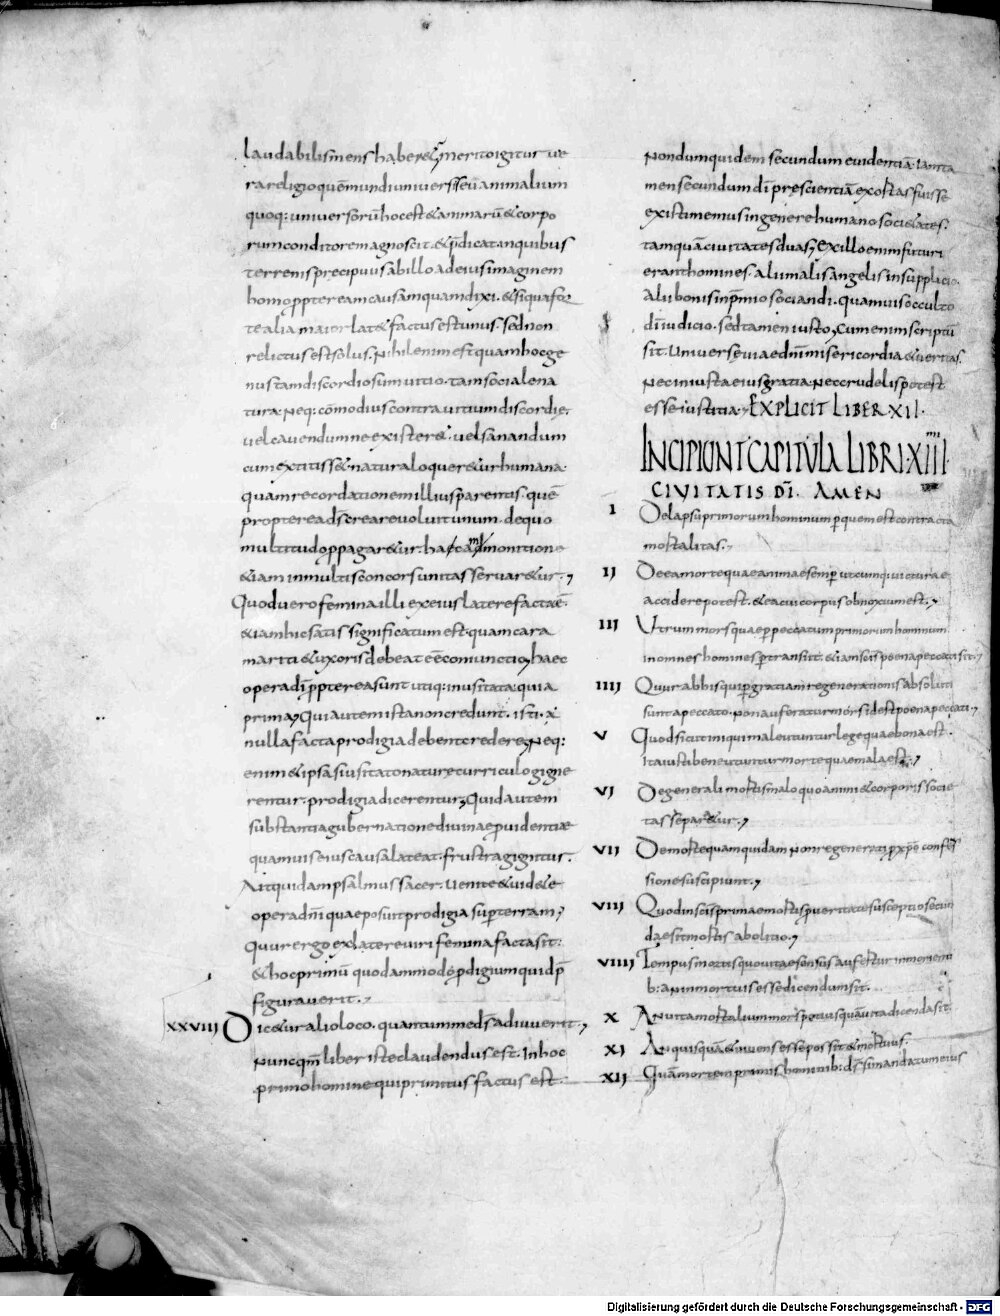 laudabilis mens habere & merito igitur ue
ra religio quē mundi uniuersi seu animalium
quoq: uniuersorū hoc est & animarū & corpo
rum conditorem agnoscit & p̄dicat in quibus
terrenis precipuus ab illo ad eius imaginem
homo ppter eam causam quam dixi. & siqua for
te alia maior lat& factus est unus. sed non
relictus est solus. Nihil enim est quam hoc ge
nus tam discordiosum uitio. tam sociale na
tura. Neq: cōmodius contra uitium discordie.
uel cauendum ne exister&. uel sanandum
cum extitiss& natura loquer&ur humana.
quam recordationem illius parentis. quē
propterea dš creare uoluit unum. de quo
multitudo ppagar&ur. hac admonitione
&iam in multis concors unitas seruar&ur.
Quod uero femina illi ex eius latere facta ē.
&iam hic satis significatum est. quam cara
mariti & uxoris debeat eē coniunctio, haec
opera dī ppterea sunt utiq: inusitata. quia
prima, Qui autem ista non credunt. isti. a
nulla facta prodigia debent credere, Neq:
enim & ipsa si usitato nature curriculo gigne
rentur. prodigia dicerentur, Quid autem
sub tanta gubernatione diuinae puidentiae
quamuis eius causa lateat. frustra gignitur.
Ait quidam psalmus sacer. Uenite & uid&e
opera dn̄i quae posuit prodigia sup terram,
Qur ergo ex latere uiri femina facta sit.
& hoc primū quodammodo pdigium quid p̄
figurauerit.
XXVIII Dic&ur alio loco. quantum me dš adiuuerit,
Nunc qm̄ liber iste claudendus est. In hoc
primo homine qui primitus factus est.
Nondum quidem secundum euidentiā. Iam ta
men secundum dī prescientiā exortas fuisse
existimemus in genere humano soci&ates.
tamquā ciuitates duas, Ex illo enim futuri
erant homines. alii malis angelis in supplicio.
Alii bonis in p̄mio sociandi. quamuis occulto
dī iudicio. sed tamen iusto, Cum enim scriptū
sit. Uniuersę uiae dn̄i misericordia & ueritas.
Nec iniusta eius gratia. Nec crudelis potest
esse iustitia. EXPLICIT LIBER XII.
INCIPIUNT CAPITULA LIBRI XIIII
CIVITATIS DĪ. AMEN
I De lapsu primorum hominum p quem est contracta
mortalitas.
II De ea morte quae animae semp utcumq: uicturae
accidere potest. & ea cui corpus obnoxium est.
III Utrum mors quae p peccatum primorum hominum
in omnes homines ptransiit. &iam scis poena peccati sit,
IIII Qur ab his qui p gratiam regenerationis absoluti
sunt a peccato. Non auferatur mors id est poena peccati,
V Quod sicut iniqui male utuntur lege quae bona est.
Ita iusti bene utuntur morte quae mala est,
VI De generali mortis malo quo animi & corporis socie
tas separ&ur.
VII De morte quam quidam Non regenerati p xp̄i confes
sione suscipiunt,
VIII Quod in scis prima e mortis p ueritate susceptio secun
dae sit mortis abolitio,
VIIII Tempus mortis quo uitae sensus aufertur in morienti
b: an in mortuis esse dicendum sit.
X An uita mortalium mors potius quā uita dicenda sit.
XI An quisquā & uiuens esse possit & mortuus.
XII Quā mortem primis hominib: dš si mandatum eius
Digitalisierung gefördert durch die Deutsche Forschungsgemeinschaft - DFG